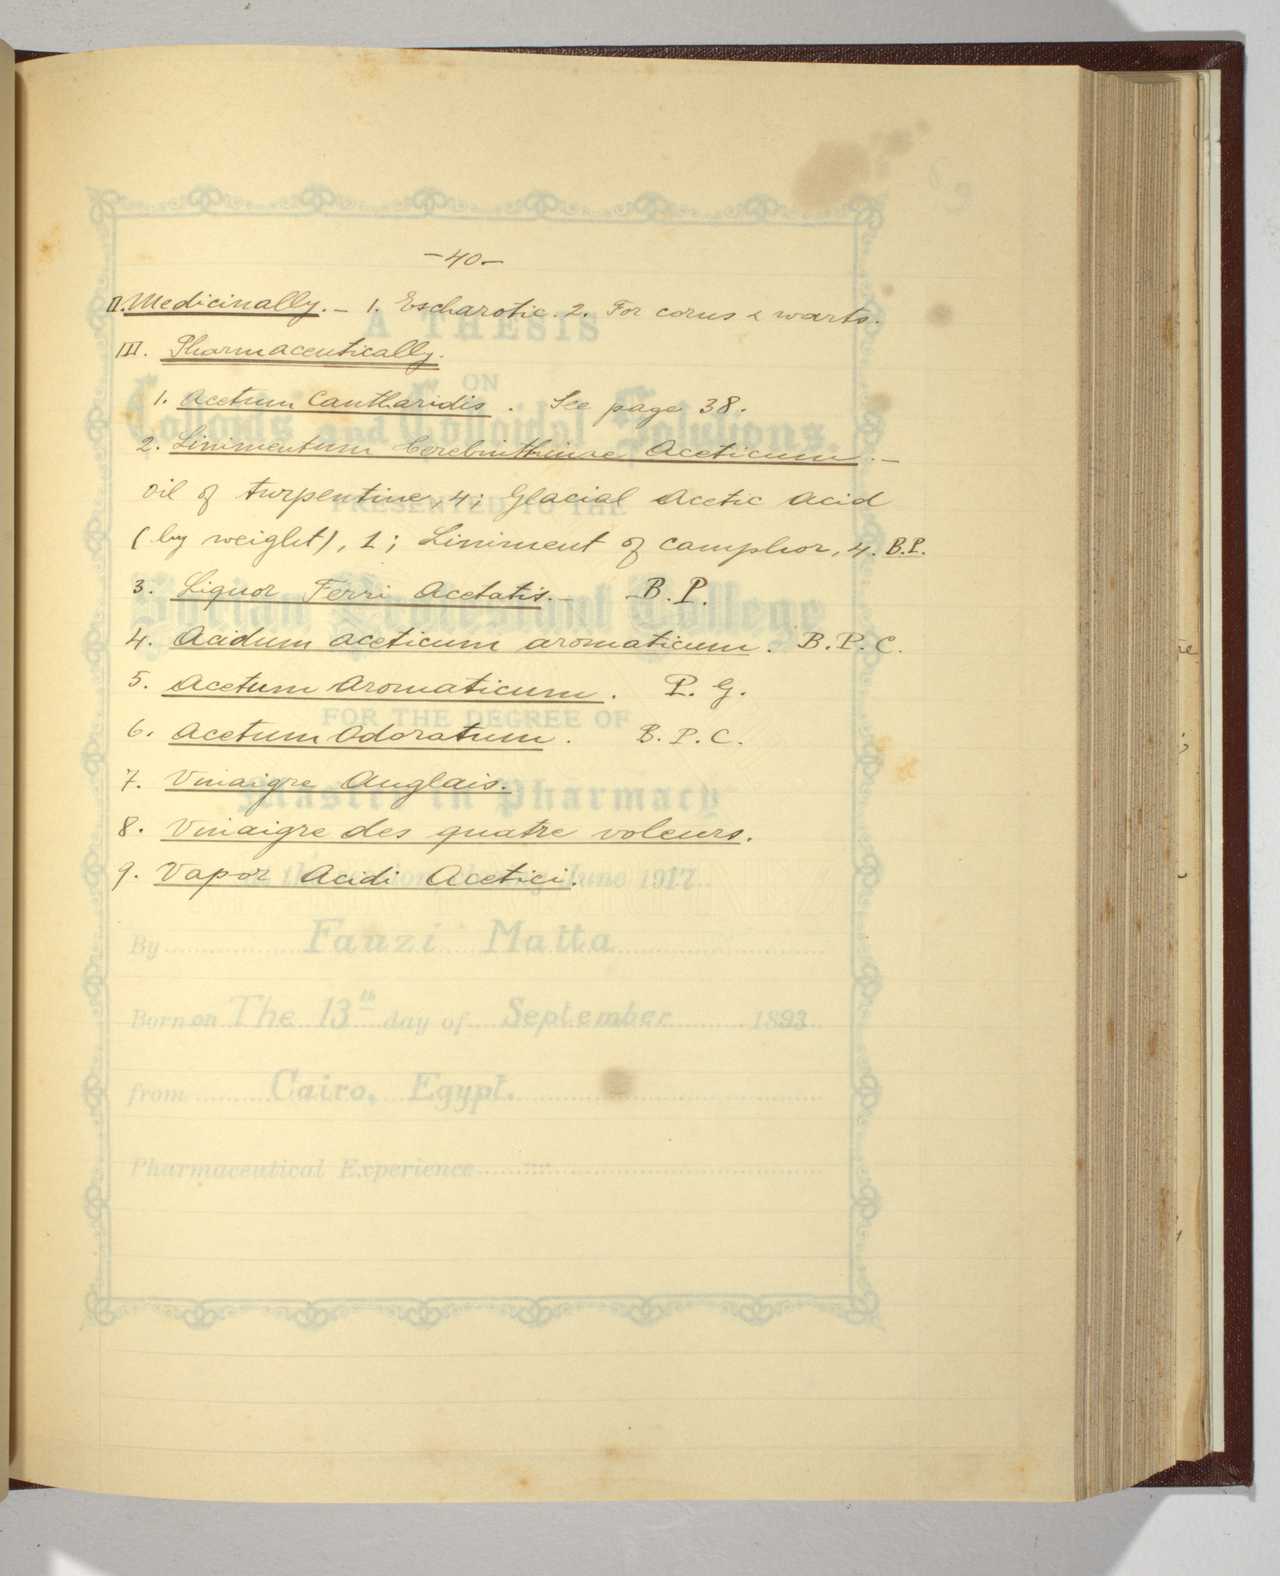 -40-
II. Medicinally. - 1. Escharotic. 2. For corns & warts.
III. Pharmaceutically.
1. Acetum Cantharidis. See page 38.
2. Linimentum Terebinthinae Aceticum. -
Oil of turpentine, 4; Glacial Acetic Acid
(by weight), 1; Liniment of camphor, 4. B.P.
3. Liquor Ferri Acetatis. - B.P.
4. Acidum aceticum aromaticum. B.P.C.
5. Acetum Aromaticum. P.G.
6. Acetum Odoratum. B.P.C.
7. Vinaigre Anglais.
8. Vinaigre des quatre voleurs.
9. Vapor Acidi Acetici.
A THESIS
ON
Colloids and Colloidal Solutions.
PRESENTED TO THE
Syrian Protestant College
FOR THE DEGREE OF
Master in Pharmacy
June 1917
By Fauzi Matta
Born on The 13th day of September 1893
from Cairo, Egypt.
Pharmaceutical Experience